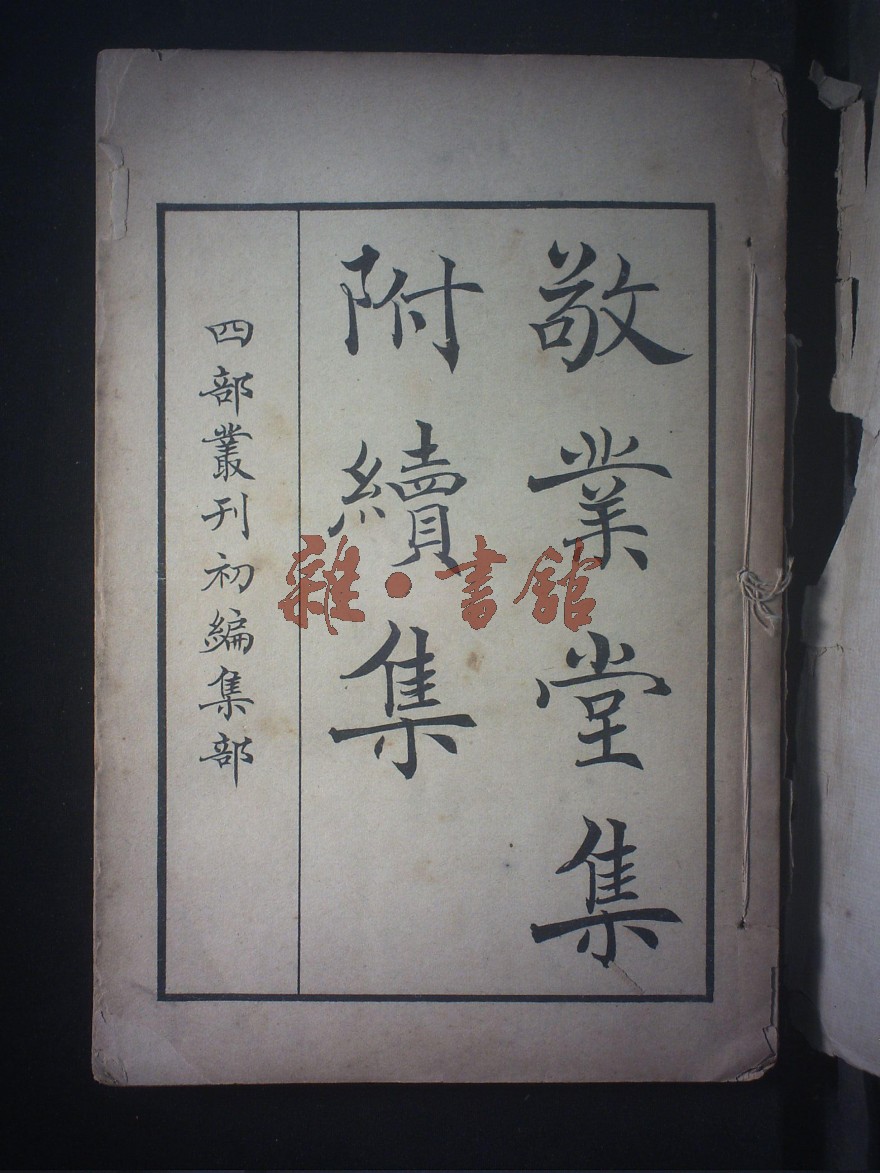 敬業堂集
附續集
四部叢刊初編集部
雜·書館